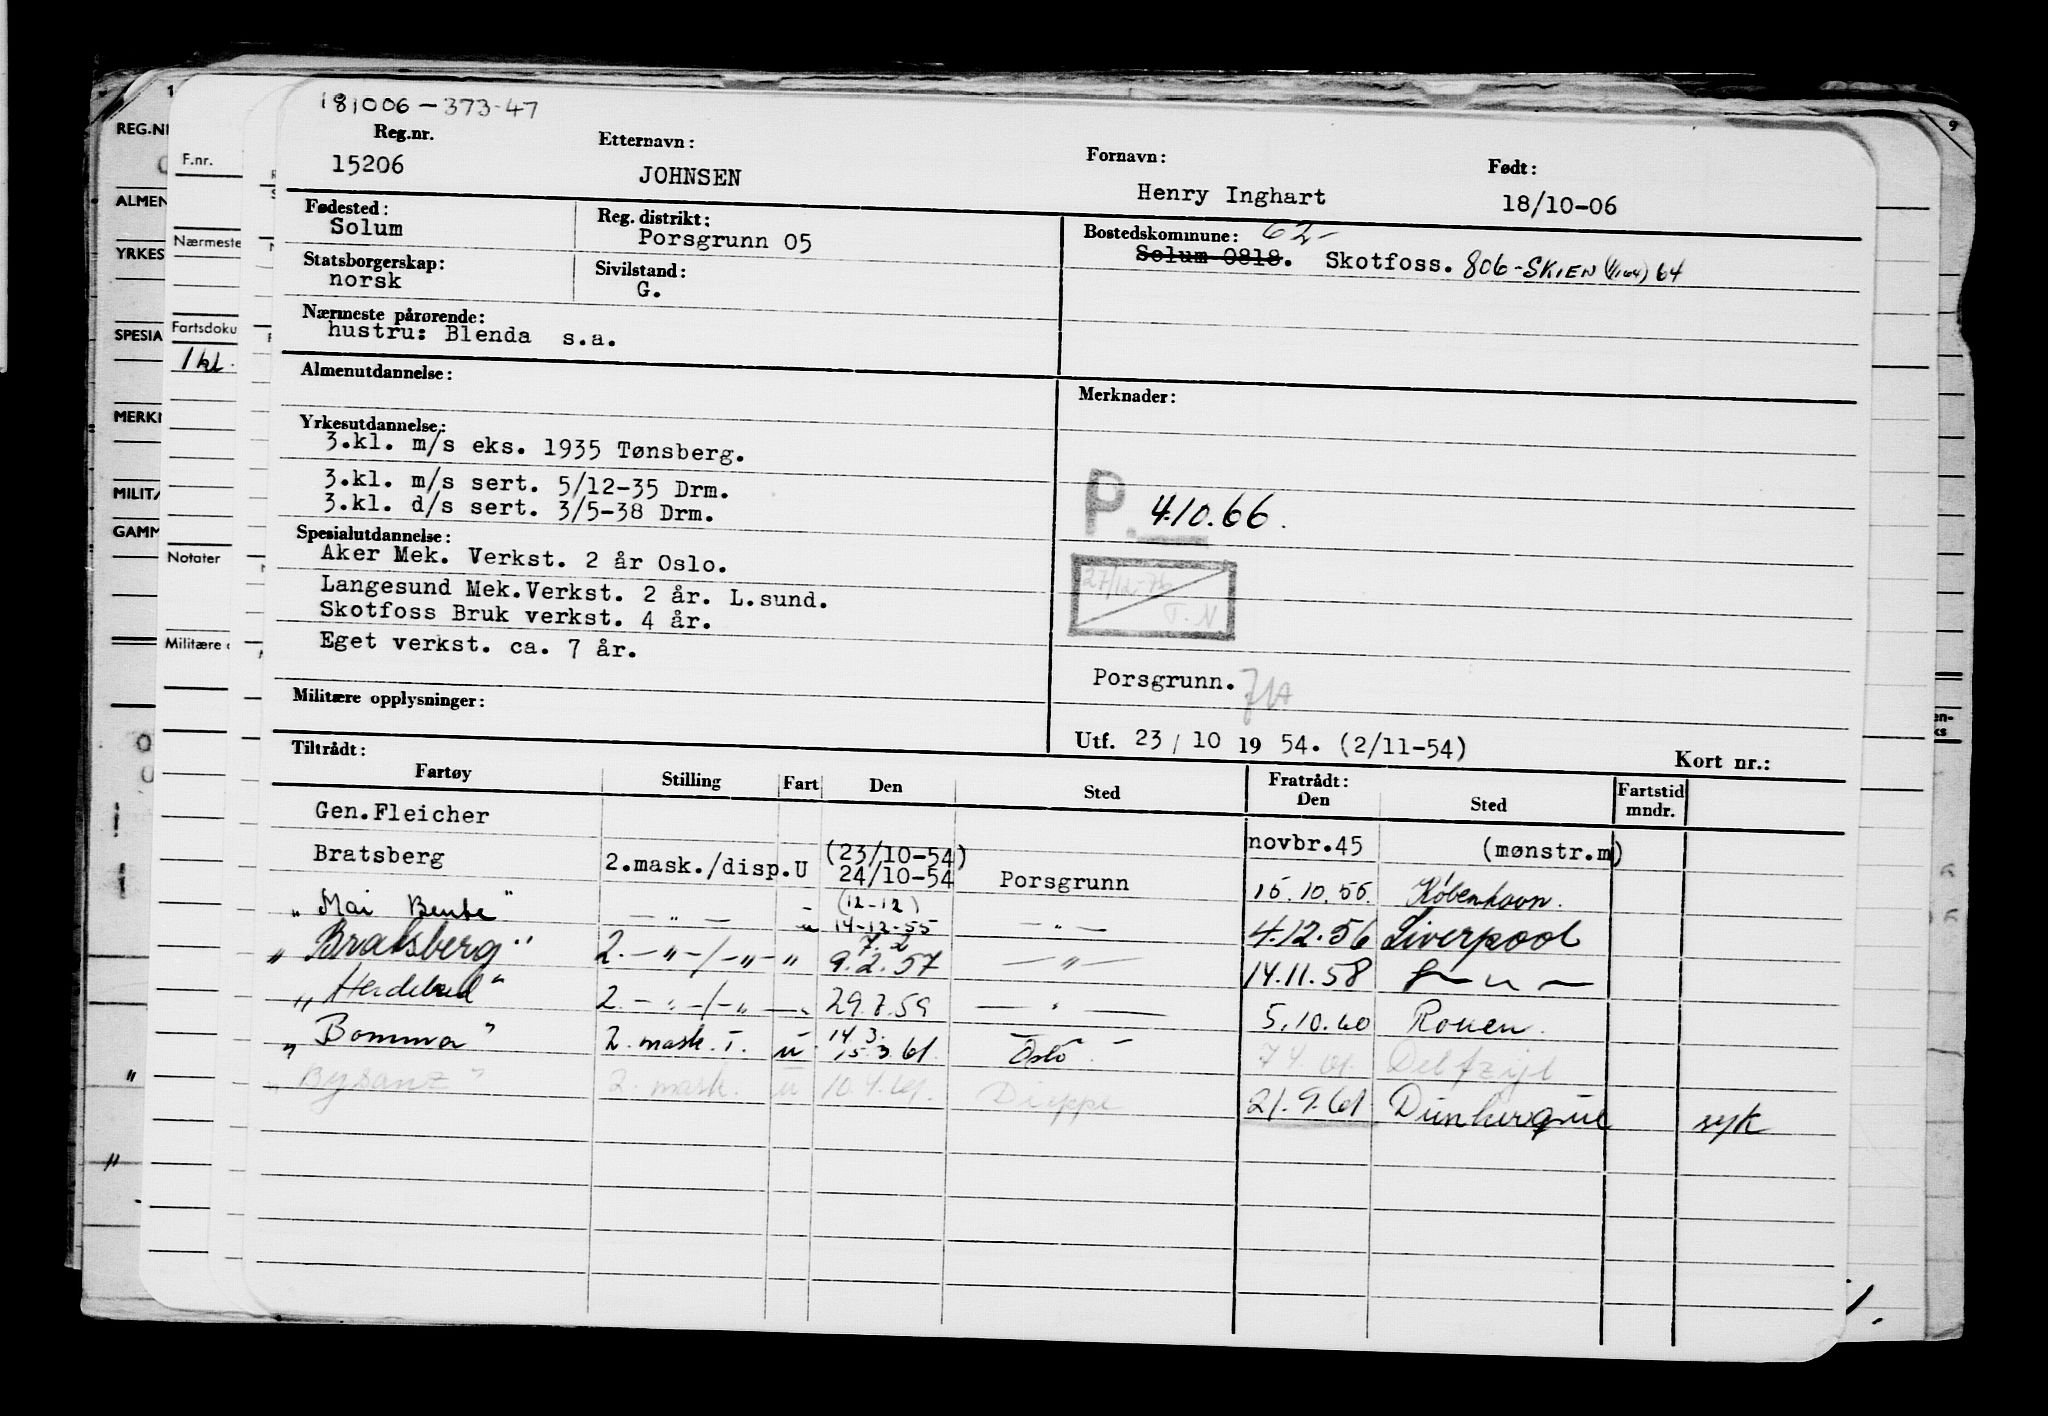 181006-373-47
Reg.nr. Etternavn: Fornavn: Født:
15206 JOHNSEN Henry Inghart 18/10-06
Fødested: Reg. distrikt: Bostedskommune: 62-
Solum Porsgrunn 05 Solum 0818. Skotfoss. 806-SKIEN (1/1 64) 64
Statsborgerskap: Sivilstand:
norsk G.
Nærmeste pårørende:
hustru: Blenda s.a.
Almenutdannelse: Merknader:
Yrkesutdannelse:
3.kl. m/s eks. 1935 Tønsberg.
3.kl. m/s sert. 5/12-35 Drm.
3.kl. d/s sert. 3/5-38 Drm.
P. 4.10.66.
Spesialutdannelse:
Aker Mek. Verkst. 2 år Oslo.
27/12-76
T.N
Langesund Mek.Verkst. 2 år. L.sund.
Skotfoss Bruk verkst. 4 år.
Eget verkst. ca. 7 år.
Porsgrunn.
Militære opplysninger:
Utf. 23/10 1954. (2/11-54) Kort nr.:
Tiltrådt: Fratrådt:
Fartøy Stilling Fart Den Sted Den Sted Fartstid mndr.
Gen.Fleicher novbr.45 (mønstr.m)
Bratsberg 2.mask./disp.U (23/10-54) 24/10-54 Porsgrunn 15.10.55. København.
"Mai Bente" — " — - u (12-12) 14-12-55 — " — 4.12.56 Liverpool
"Bratsberg" 2. — " — / — " — " 7.2 9.2.57 — " — 14.11.58 — " —
" " 2. — " — / — " — 29.8.59 — " — 5.10.60 Rouen.
"Bomma" 2. mask. I. u 14.3. 15.3.61. Oslo 7.4.61. Delfzijl
"Bysanz" 2. mask. u 10.4.61. Dieppe 21.9.61 Dunkerque syk
REG.NR
ALMEN
YRKES
SPESIA
MERKN
MILITÆ
GAMM
F.nr.
Nærmeste
Fartsdoku
1 kl.
Notater
Militære o